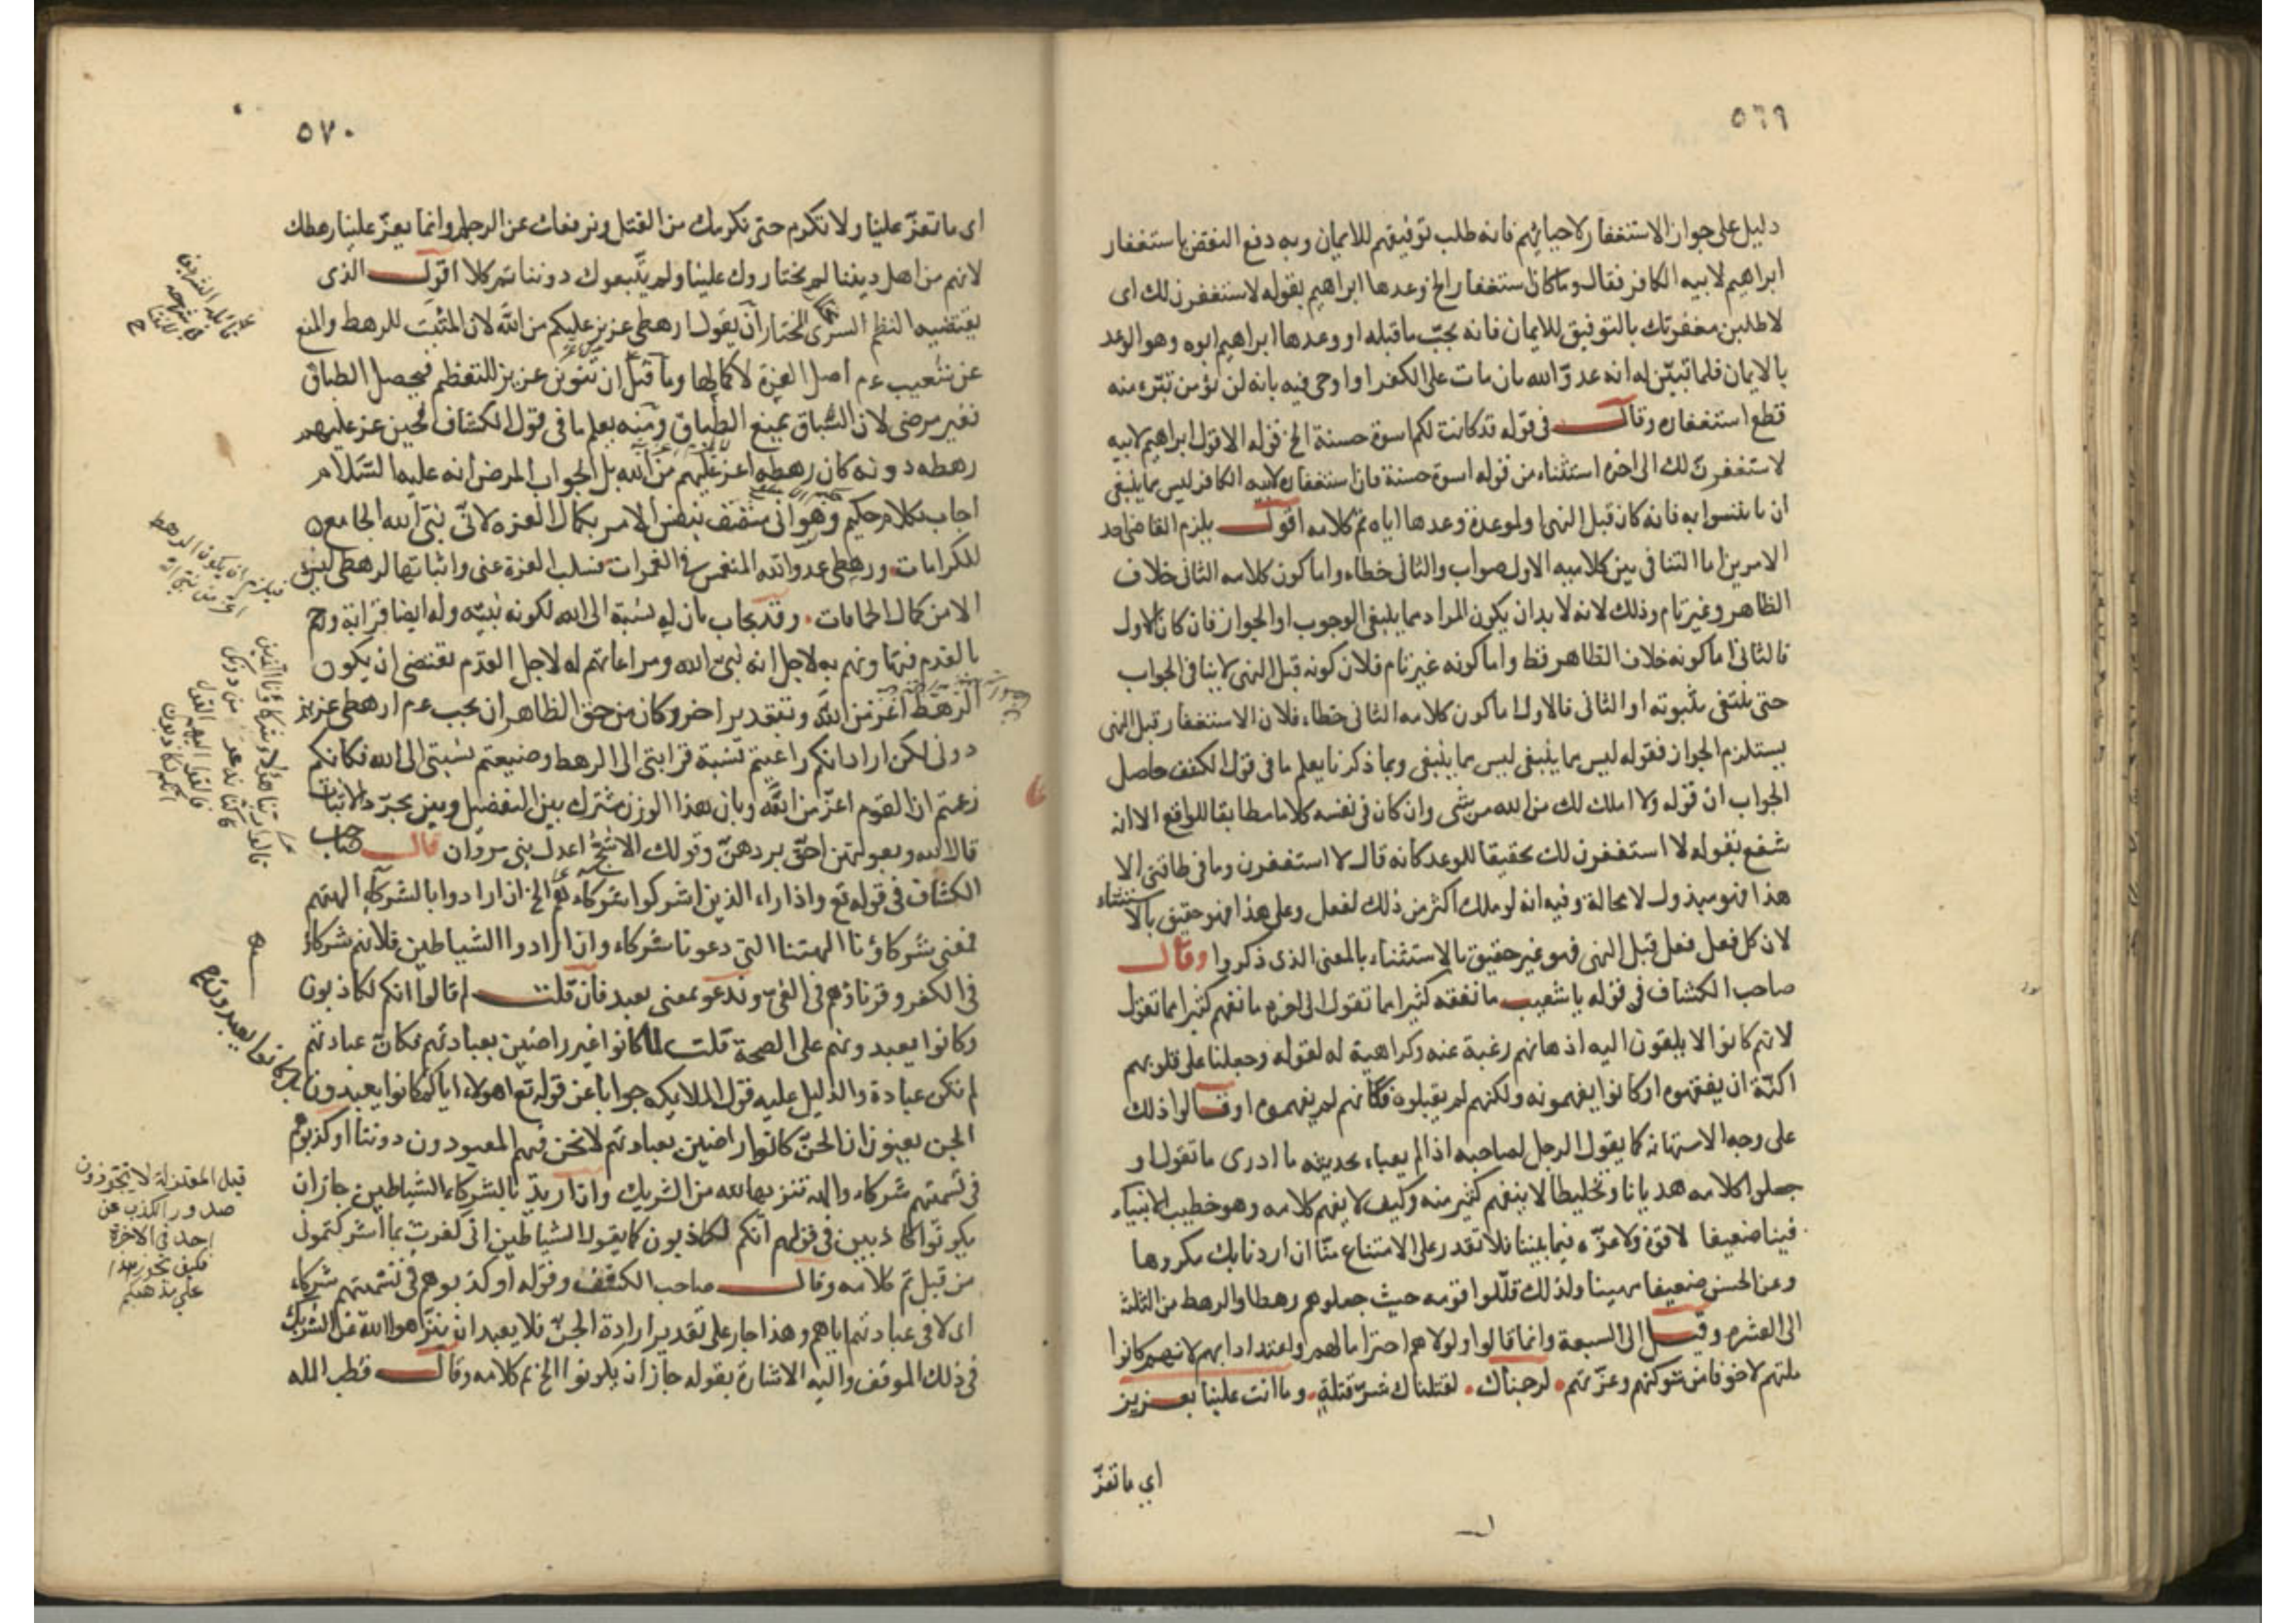 ٥٦٩
دليل على جواز الاستغفار لاحيائهم فانه طلب توفيقهم للايمان وبه دفع النقض باستغفار
ابراهيم لابيه الكافر فقال وما كان استغفار الخ وعدها ابراهيم بقوله لاستغفرن لك اى
لاطلبن مغفرتك بالتوفيق للايمان فانه يجبّ ما قبله او وعدها ابراهيم ابوه وهو الوعد
بالايمان فلما تبيّن له انه عدوّ الله بان مات على الكفر او اوحى فيه بانه لن يؤمن تبرّء منه
قطع استغفاره وقال فى قوله قد كانت لكم اسوة حسنة الخ قوله الا قول ابراهيم لابيه
لاستغفرنّ لك الى اخره استثناء من قوله اسوة حسنة فان استغفاره لابيه الكافر ليس مما ينبغى
ان ياتسوا به فانه كان قبل النهى او لموعدة وعدها اياه تم كلامه اقول يلزم القاضى احد
الامرين اما التنافى بين كلاميه الاول صواب والثانى خطاء واما كون كلامه الثانى خلاف
الظاهر وغير تام وذلك لانه لا بد ان يكون المراد مما ينبغى الوجوب او الجواز فان كان الاول
فالثانى اما كونه خلاف الظاهر فظ واما كونه غير تام فلان كونه قبل النهى لا ينافى الجواب
حتى ينتفى بثبوته او الثانى فالاول اما كون كلامه الثانى خطاء فلان الاستغفار قبل النهى
يستلزم الجواز فقوله ليس مما ينبغى ليس مما ينبغى وبما ذكرنا يعلم ما فى قول الكشف حاصل
الجواب ان قوله ولا املك لك من الله من شى وان كان فى نفسه كلاما مطابقا للواقع الا انه
شفع بقوله لا استغفرن لك تحقيقا للوعد كانه قال لا استغفرن وما فى طاقتى الا
هذا فهو مبذول لا محالة وفيه انه لو ملك اكثر من ذلك لفعل وعلى هذا فهو حقيق بالاستثناء
لان كل فعل فعل قبل النهى فهو غير حقيق بالاستثناء بالمعنى الذى ذكروا وقال
صاحب الكشاف فى قوله يا شعيب ما نفقه كثيرا مما تقول الى اخره ما نفهم كثيرا مما تقول
لانهم كانوا لا يلقون اليه اذهانهم رغبة عنه وكراهية له لقوله وجعلنا على قلوبهم
اكنّة ان يفقهوه او كانوا يفهمونه ولكنهم لم يقبلوه فكانهم لم يفهموه او قالوا ذلك
على وجه الاستهانه كما يقول الرجل لصاحبه اذا لم يعباء بحديثه ما ادرى ما تقول او
جعلوا كلامه هذيانا وتخليطا لا ينفهم كثير منه وكيف لا يفهم كلامه وهو خطيب الانبياء
فينا ضعيفا لا قوة ولا عزّ فيما بيننا فلا تقدر على الامتناع منّا ان اردنا بك مكروها
وعن الحسن ضعيفا مهينا ولذلك قلّلوا قومه حيث جعلوهم رهطا والرهط من الثلثة
الى العشره وقيل الى السبعة وانما قالوا ولولاهم احتراما لهم واعتدادا بهم لانهم كانوا
ملتهم لا خوفا من شوكتهم وعزّتهم لرجمناك لقتلناك شرّ قتلة وما انت علينا بعزيز
اي ما تعزّ
٥٧٠
اى ما تعزّ علينا ولا تكرم حتى نكرمك من القتل ونرفعك عن الرجم وانما يعزّ علينا رهطك
لانهم من اهل ديننا لم يختاروك علينا ولم يتّبعوك دوننا تم كلامه اقول الذى
يقتضيه النظم السرى المختار ان يقول ارهطى عزيز عليكم من الله لان المثبت للرهط والمنع
عن شعيب عم اصل العزة لا كمالها وما قيل ان تنوين عزيز للتعظم فيحصل الطباق
فغير مرضى لان السّباق يمنع الطباق ومنه يعلم ما فى قول الكشاف فحين عز عليهم
رهطه دونه كان رهطه اعز عليهم من الله بل الجواب المرض انه عليه السّلام
اجاب بكلام حكيم وهو انى متصف بنفس الامر بكمال العزة لانّى نبىّ الله الجامع
للكرامات ورهطى عدو الله المنغمس فى الغمرات فسلب العزة عنى واثباتها لرهطى ليس
الا من كمال الحامات وقد يجاب بان له نسبة الى الله لكونه نبيّه وله ايضا قرابة وح
بالقدم فتهاونهم به لاجل انه نبى الله ومراعاتهم له لاجل القدم يقتضى ان يكون
الرهط اعز من الله وبتقدير اخر وكان من حق الظاهر ان يجب عم ارهطى عزيز
دونى لكن اراد انكم راعيتم نسبة قرابتى الى الرهط وضيعتم نسبتى الى الله فكانكم
زعمتم ان القوم اعزّ من الله وبان هذا الوزن مشترك بين التفضيل وبين مجرّد الاثبات
قال الله وبعولتهن احقّ بردهنّ وقولك الاشجّ اعدل بنى مروان قال صاحب
الكشاف فى قوله تع واذا راء الذين اشركوا شركاءهم الخ ان ارادوا بالشركاء الهتهم
فمعنى شركاؤنا الهتنا التى دعونا شركاء وان ارادوا الشياطين فلانهم شركاؤ
فى الكفر وقرناؤهم فى الغىّ وندعو بمعنى نعبد فان قلت لم قالوا انكم لكاذبون
وكانوا يعبدونهم على الصحة قلت لما كانوا غير راضين بعبادتهم فكانّ عبادتهم
لم تكن عبادة والدليل عليه قول الملايكه جوابا عن قوله تع اهولاء اياكم كانوا يعبدون
الجن يعبون ان الجنّ كانوا راضين بعبادتهم لا نحن فهم المعبودون دوننا او كذبوهم
فى تسميتهم شركاء والهة تنزيها لله من الشريك وان اريد بالشركاء الشياطين جاز ان
يكونوا كاذبين فى قولهم انكم لكاذبون كما يقول الشياطين انى كفرت بما اشركتمون
من قبل تم كلامه وقال صاحب الكشف وقوله او كذبوهم فى تسميتهم شركاء
اى لا فى عبادتهم اياهم وهذا جار على تقدير ارادة الجنّ فلا يبعد ان ينزّهوا الله عن الشريك
فى ذلك الموقف واليه الاشارة بقوله جاز ان يكونوا الخ تم كلامه وقال قطب المله
فيلزم ان يكون الرهط
اعز من نبى الله
قالوا ربنا هؤلاء شركاؤنا الذين
كنّا ندعو من دونك
فالقوا اليهم القول
انكم لكاذبون
بل كانوا يعبدون
قيل المعتزلة لا يتجوزون
صدور الكذب عن
احد فى الاخرة
فكيف يجوز هذا
على مذهبكم